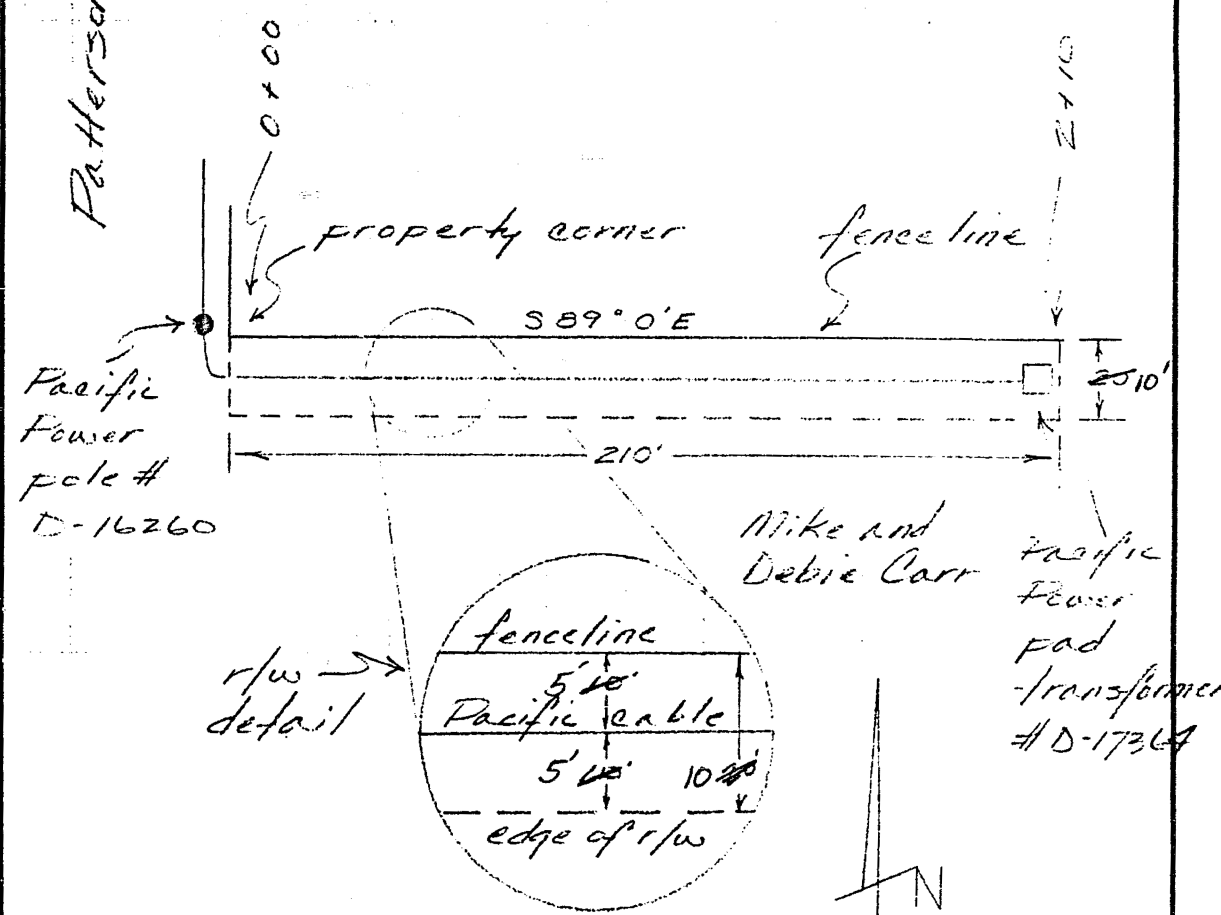 0+00
2+10
property corner
fenceline
S 89° 0' E
10'
210'
Pacific
Power
pole #
D-16260
Mike and
Debie Carr
Pacific
Power
pad
transformer
r/w
detail
fenceline
5' 10'
Pacific cable
5' 10'
10 20'
edge of r/w
N